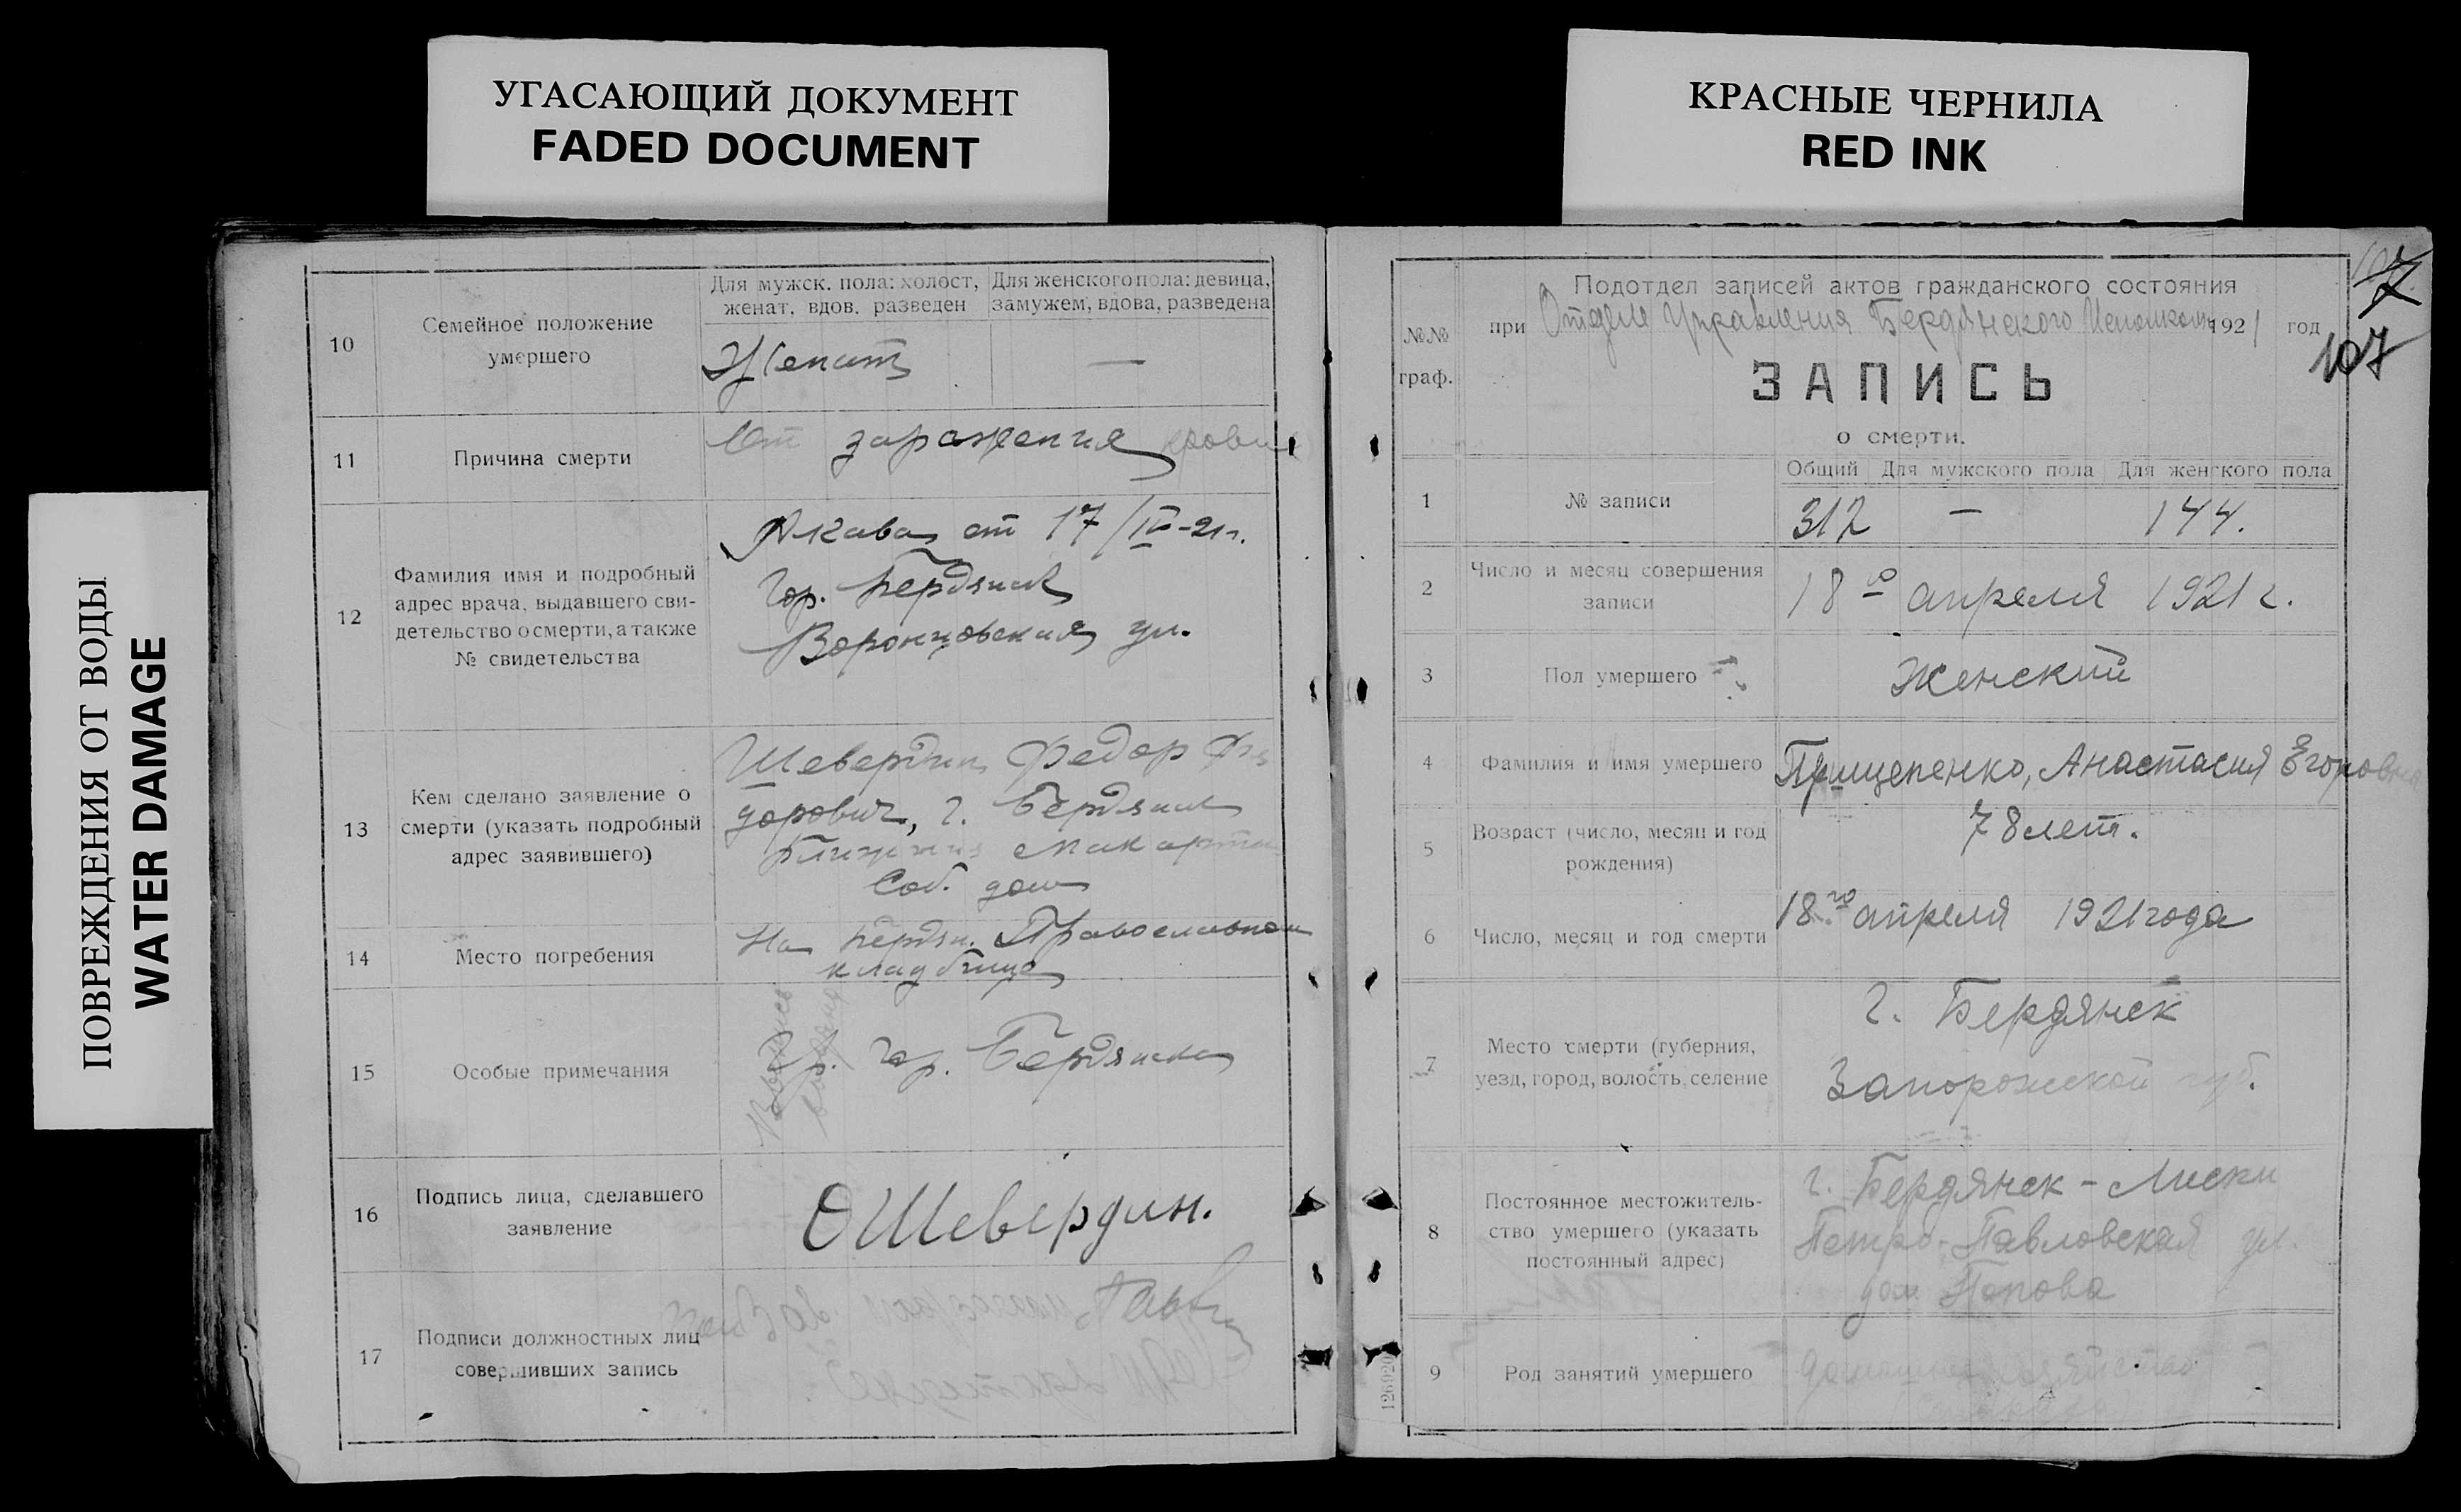 УГАСАЮЩИЙ ДОКУМЕНТ
FADED DOCUMENT
КРАСНЫЕ ЧЕРНИЛА
RED INK
ПОВРЕЖДЕНИЯ ОТ ВОДЫ
WATER DAMAGE
10
Семейное положение
умершего
Для мужск. пола: холост,
женат, вдов, разведен
Для женского пола: девица,
замужем, вдова, разведена
Женат
—
11
Причина смерти
От заражения крови
12
Фамилия имя и подробный
адрес врача, выдавшего сви-
детельство о смерти, а также
№ свидетельства
от 17/IV-21 г.
Гор. Бердянск
Воронцовская ул.
13
Кем сделано заявление о
смерти (указать подробный
адрес заявившего)
Шевердин Федор Фе
дорович, г. Бердянск
Соб. дом
14
Место погребения
На Бердян. Православном
кладбище
15
Особые примечания
Гр. гор. Бердянска
16
Подпись лица, сделавшего
заявление
Ѳ Шевердин.
17
Подписи должностных лиц
совершивших запись
№№
граф.
Подотдел записей актов гражданского состояния
при Отделе Управления Бердянского Исполкома 1921 год
7
107
ЗАПИСЬ
о смерти.
Общий Для мужского пола Для женского пола
1
№ записи
312 — 144.
2
Число и месяц совершения
записи
18го апреля 1921 г.
3
Пол умершего
Женский
4
Фамилия и имя умершего
Прищепенко, Анастасия Егоровна
5
Возраст (число, месяц и год
рождения)
78 лет.
6
Число, месяц и год смерти
18го апреля 1921 года
7
Место смерти (губерния,
уезд, город, волость, селение
г. Бердянск
Запорожской губ.
8
Постоянное местожитель-
ство умершего (указать
постоянный адрес)
г. Бердянск - Лиски
Петро-Павловская ул.
дом Попова
9
Род занятий умершего
126920